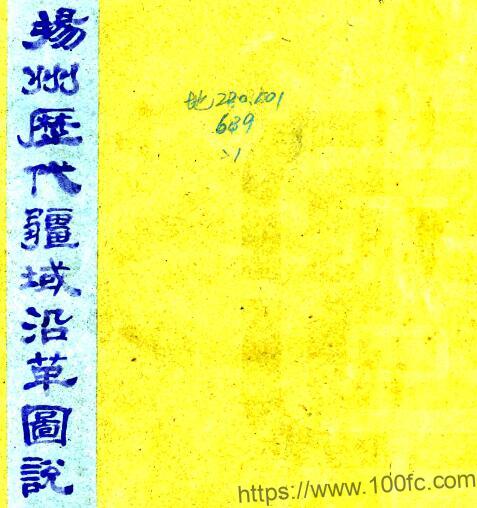 揚州歴代疆域沿革圖說
地280.101
689
:1
https://www.100fc.com